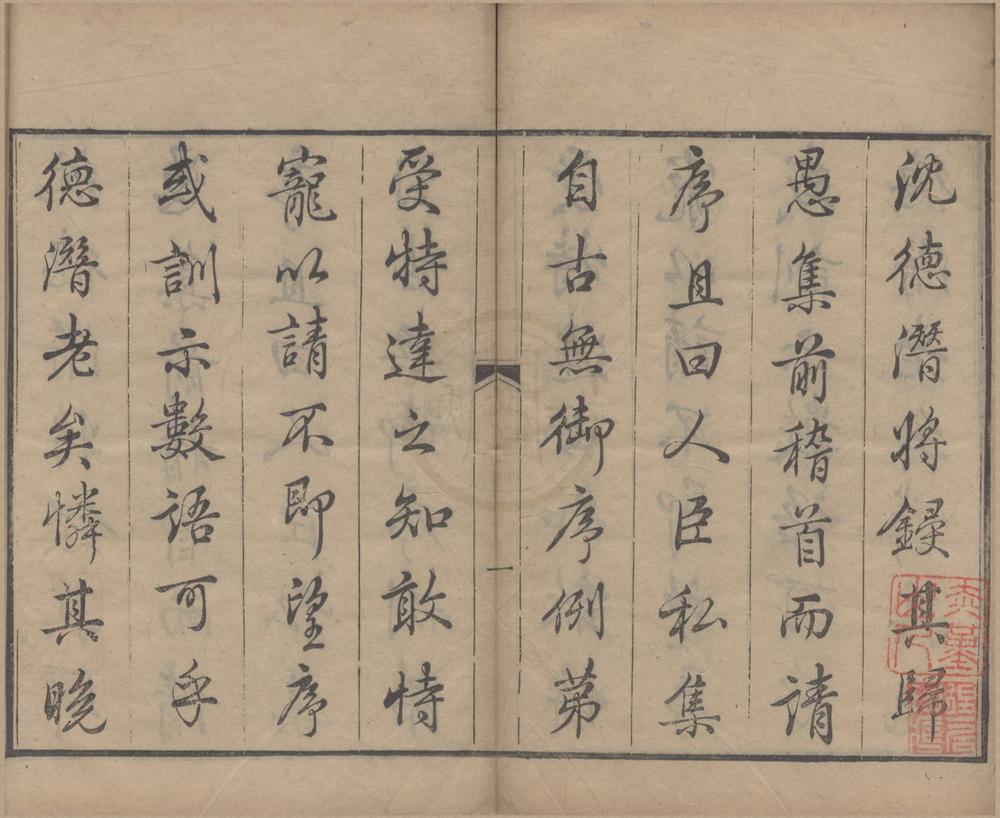 沈德潛將鋟其歸
愚集前稽首而請
序且曰人臣私集
自古無御序例第
一
受特達之知敢恃
寵以請不即望序
或訓示數語可乎
德潛老矣憐其晚